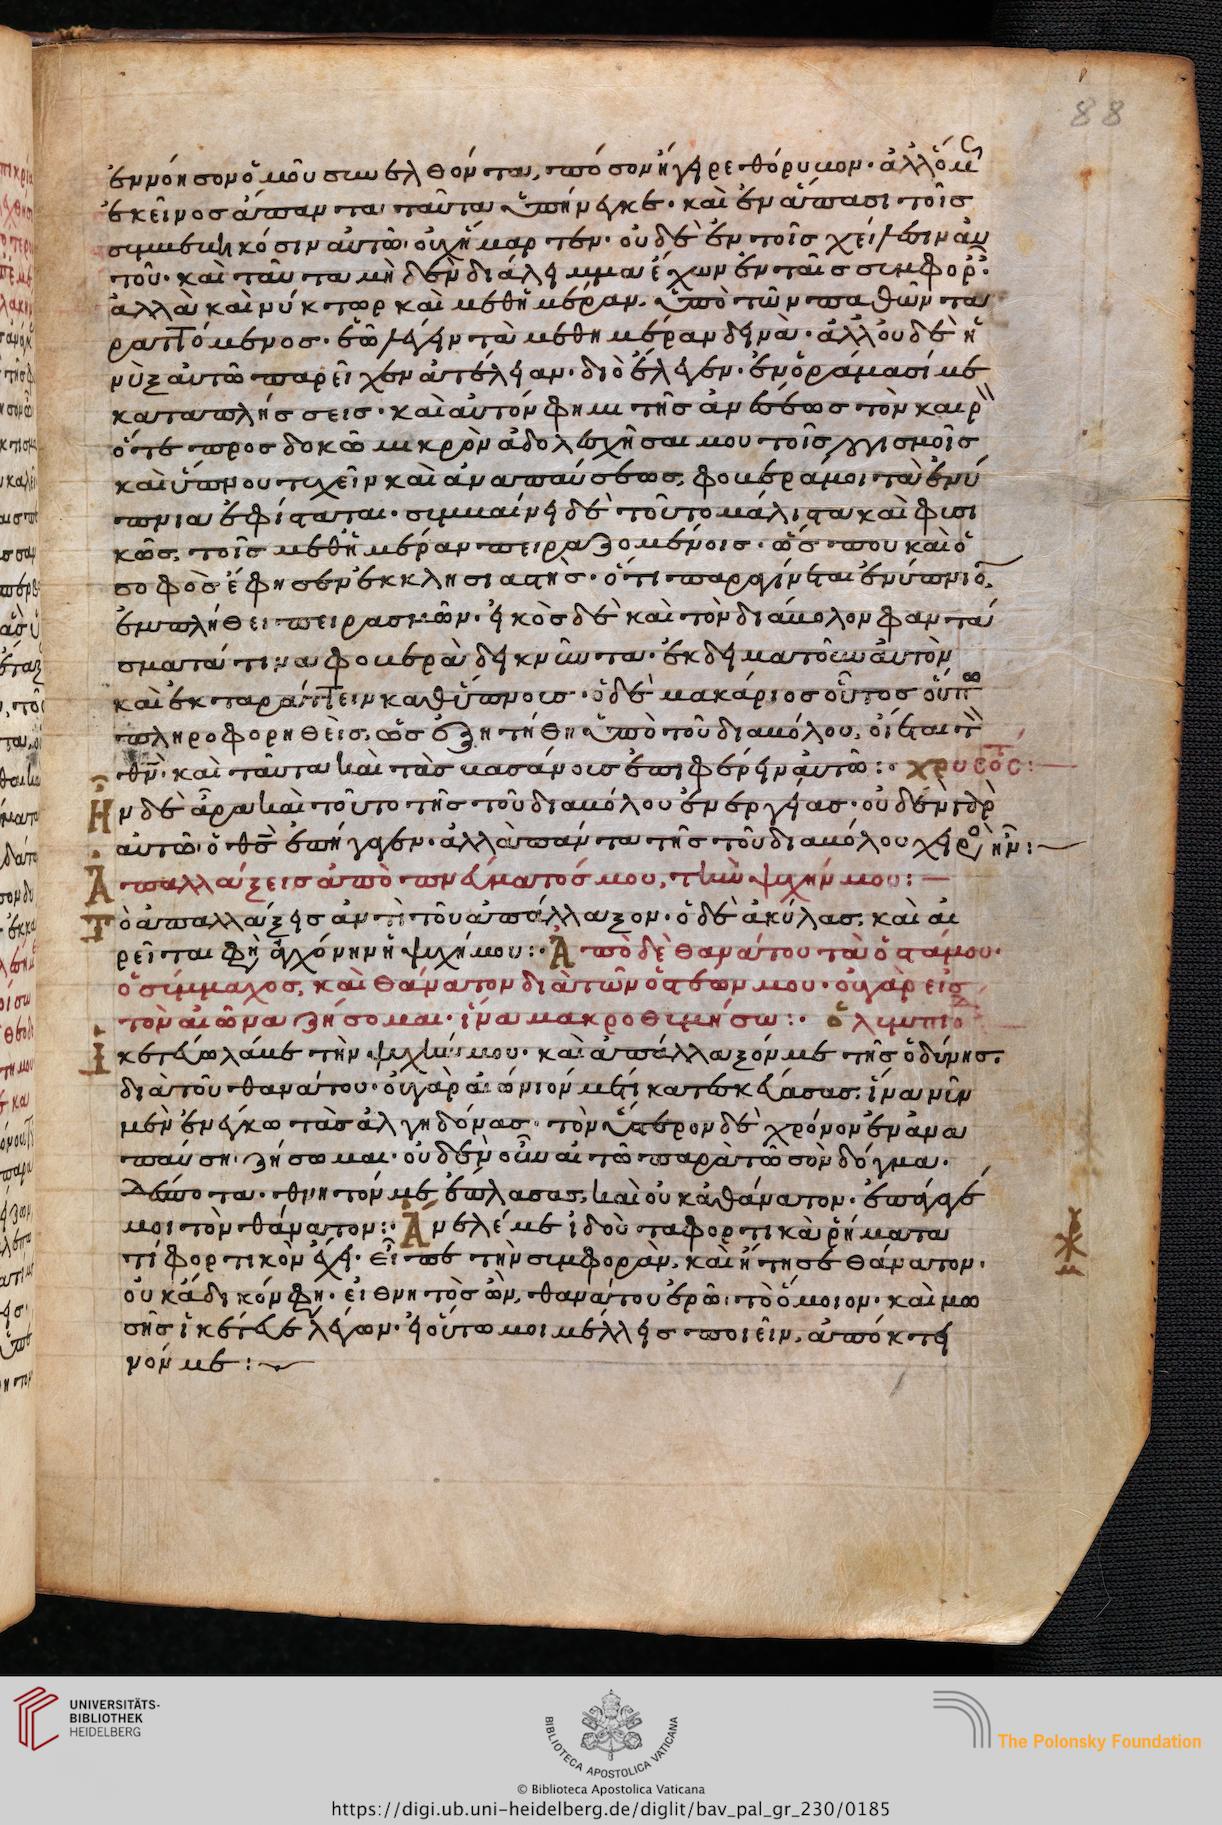 88
ἐννόησον ὁμοῦ συνελθόντα, πόσον ἤγειρε θόρυβον· ἀλλ' ὅμως
ἐκεῖνος ἅπαντα ταῦτα ὑπήνεγκε· καὶ ἐν ἅπασι τοῖς
συμβεβηκόσιν αὐτῶ· οὐχ ἥμαρτεν· οὐδὲ ἐν τοῖς χείλεσιν αὐ
τοῦ· καὶ ταῦτα μηδὲν διάλειμμα ἔχων ἐν ταῖς συμφορ
ἀλλὰ καὶ νύκτωρ καὶ μεθ' ἡμέραν. ὑπὸ τῶν παθῶν τα
ραττόμενος· ἐῶ λέγειν τὰ μεθ' ἡμέραν δεινὰ· ἀλλ' οὐδὲ ἡ
νὺξ αὐτῶ παρεῖχεν ἀτέλειαν· διὸ ἔλεγεν· ἐν ὁράμασί με
καταπλήσσεις· καὶ αὐτόν φημι τῆς ἀνέσεως τὸν καιρ
ὅτε προσδοκῶ μικρὸν ἀδολεσχῆσαι μου τοῖς λογισμοῖς
καὶ ὕπνου τυχεῖν καὶ ἀναπαύσεως, φοβερά μοι τὰ ἐνύ
πνια ἐφίσταται· συμβαίνει δὲ τοῦτο μάλιστα καὶ φυσι
κῶς, τοῖς μεθ' ἡμέραν πειραζομένοις· ὥς που καὶ ὁ
σοφὸς ἔφησεν ἐκκλησιαστὴς· ὅτι παραγίνεται ἐνύπνιον
ἐν πλήθει πειρασμῶν· εἰκὸς δὲ καὶ τὸν διάβολον φαντά
σματά τινα φοβερὰ δεικνύντα· ἐκδειματοῦν αὐτὸν
καὶ ἐκταράττειν καθ' ὕπνους· ὁ δὲ μακάριος οὗτος οὔπω
πληροφορηθεὶς, ὡς ἐζητήθη ὑπὸ τοῦ διαβόλου, οἴεται τὸν
θν· καὶ ταῦτα καὶ τὰς βασάνους ἐπιφέρειν αὐτῶ: χρυσοστ:
Ἦν δὲ ἄρα καὶ τοῦτο τῆς τοῦ διαβόλου ἐνεργείας· οὐδὲν γὰρ
αὐτῶ ὁ θς ἐπήγαγεν· ἀλλὰ πάντα τῆς τοῦ διαβόλου χειρὸς ἦν:
Ἀπαλλάξεις ἀπὸ πνεύματός μου, τὴν ψυχήν μου:
Τὸ ἀπαλλάξεις ἀντὶ τοῦ ἀπάλλαξον· ὁ δὲ ἀκύλας, καὶ αἱ
ρεῖται φησὶν ἀγχόνην ἡ ψυχή μου: Ἀπὸ δὲ θανάτου τὰ ὀστᾶ μου·
ὁ σύμμαχος, καὶ θάνατον διὰ τῶν ὀστέων μου· οὐ γὰρ εἰς
τὸν αἰῶνα ζήσομαι· ἵνα μακροθυμήσω: ὀλυμπιο
Ἱκετεύω λάβε τὴν ψυχήν μου· καὶ ἀπάλλαξόν με τῆς ὀδύνης·
διὰ τοῦ θανάτου· οὐ γὰρ αἰώνιόν μέ τι κατεσκεύασας, ἵνα νῦν
μὲν ἐνέγκω τὰς ἀλγηδόνας· τὸν ὕστερον δὲ χρόνον ἐν ἀνα
παύσει ζήσωμαι· οὐδὲν οὖν αἰτῶ παρὰ τὸ σὸν δόγμα·
δέσποτα· θνητόν με ἔπλασας, καὶ οὐκ ἀθάνατον· ἐπάγαγέ
μοι τὸν θάνατον: Ἀνελέ με ἰδοὺ τὰ φορτικὰ ῥήματα
τί φορτικὸν ἔχει· εἶπε τὴν συμφορὰν, καὶ ᾔτησε θάνατον·
οὐκ ἄδικόν φη· εἰ θνητὸς ὢν, θανάτου ἐρῶ· τὸ ὅμοιον· καὶ μω
σῆς ἱκέτευε λέγων· εἰ οὕτω μοι μέλλεις ποιεῖν, ἀπόκτει
νόν με:
UNIVERSITÄTS-
BIBLIOTHEK
HEIDELBERG
BIBLIOTECA APOSTOLICA VATICANA
© Biblioteca Apostolica Vaticana
The Polonsky Foundation
https://digi.ub.uni-heidelberg.de/diglit/bav_pal_gr_230/0185